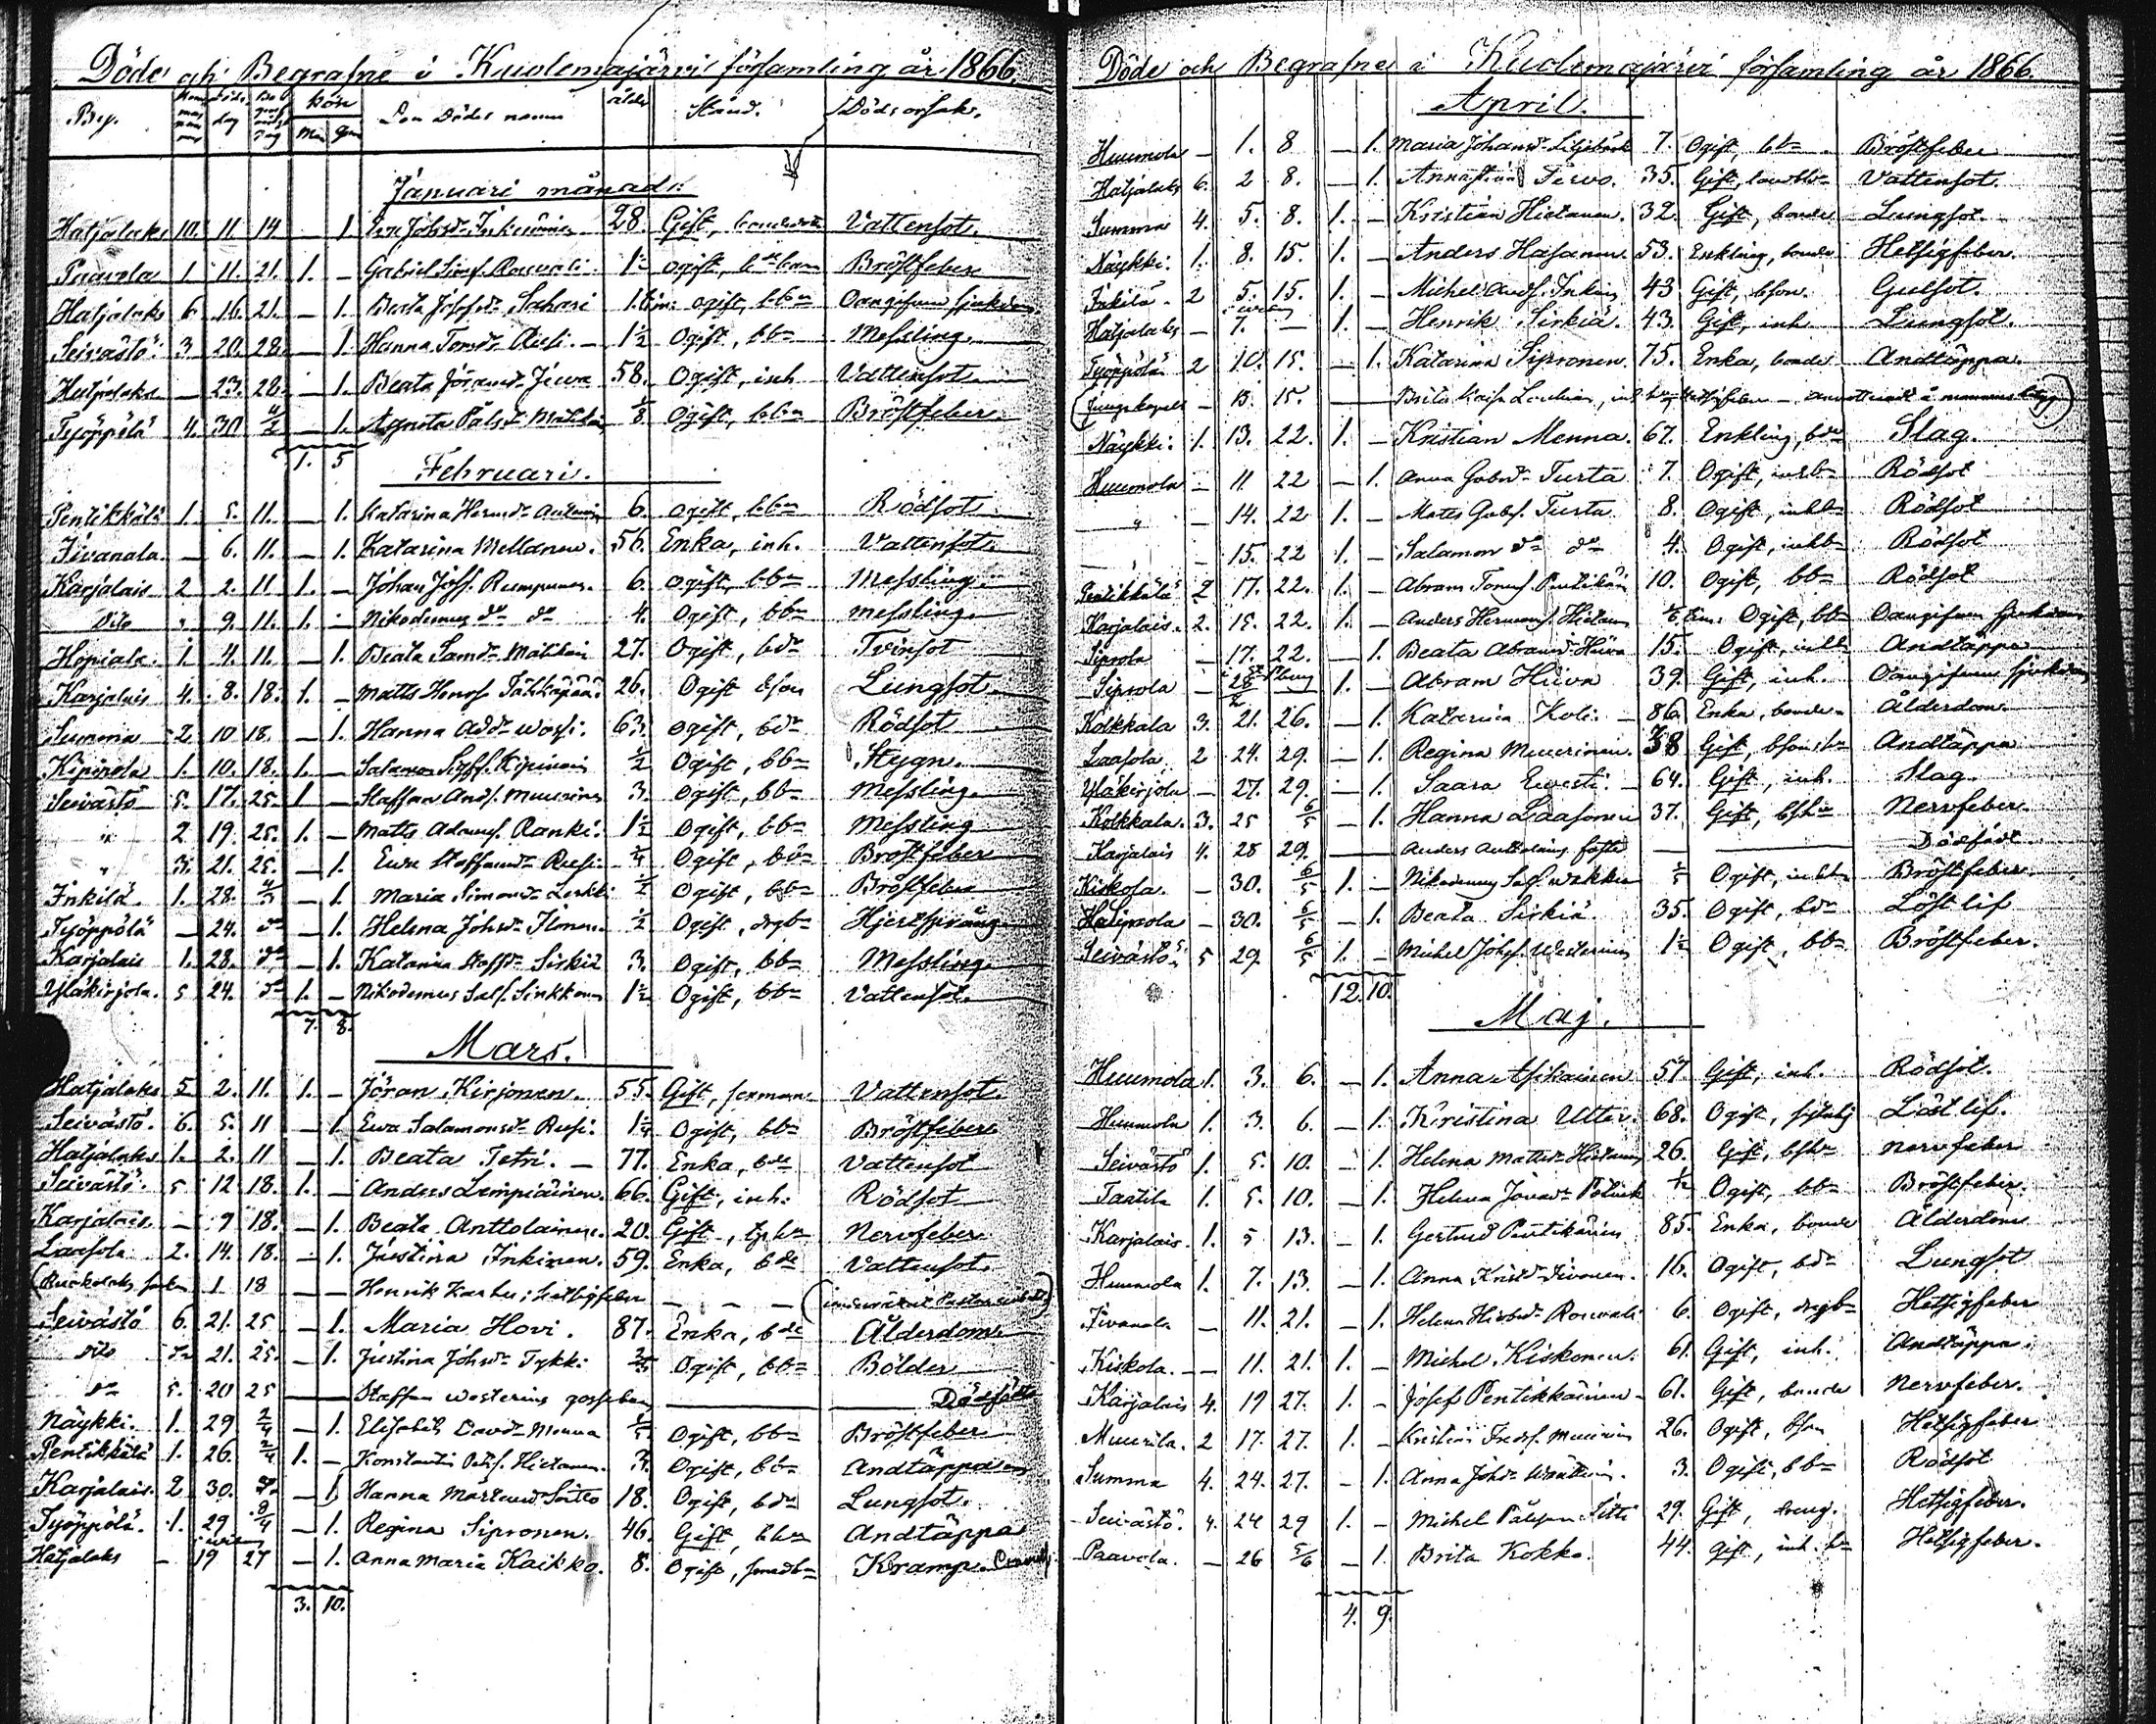 Döde och Begrafne i Kuolemajärvi församling år 1866.
By. Hemmans nummer döds dag Begrafnings dag kön Man Qvin Den Dödes namn ålder Stånd. Dödsorsak.
Januari månad:
Hatjalaks 10. 11 14 1. Johsdr 28. Gift, Vattensot.
Paavola 1 11. 21. 1. – Gabriel Simss. Rouvali 1½ ogift, Bröstfeber
Hatjalaks 6 16. 21. – 1. Beata Josefsdr Sahari 1. tim: ogift, bbn Oangifven sjukdom
Seivästö 3 20. 28. – 1. Hanna Tomsdr Rusi. – 1½ Ogift, bbn Messling.
Hatjalaks – 23. 28. – 1. Beata Göransdr 58. Ogift, inh Vattensot
Työppölä 4. 30 4/2 – 1. Agneta Pålsdr 1/8 Ogift, bbn Bröstfeber.
1. 5
Februari.
Pentikkälä 1. 5. 11. – 1. Katarina Hermsdr 6. ogift, bbn Rödsot
Iivanala – 6. 11. – 1. Katarina Mellanen. 56. Enka, inh. Vattensot.
Karjalais 2 2. 11 1. – Johan Jöss. Rumpunen. 6. ogift, bbn Messling
Dito " 9. 11. 1. – Nikodemus do do 4. Ogift, bbn messling.
Hopiala. 1. 4. 11. – 1. Beata Samdr 27. Ogift, bdr Tvinsot
Karjalais 4. 8. 18. 1. – Matts Henrss Tähkäpää. 26. Ogift bson Lungsot
Summa 2 10 18. – 1. Hanna Addr 63. ogift, bdr Rödsot
Kipinola 1. 10. 18. 1. – Salamon ½ Ogift, bbn Stygn.
Seivästö 5. 17. 25. 1 – Staffan Ands. Muurinen 3. Ogift, bbn Messling.
" 2 19. 25. 1. – Matts Adams. Ranki. 1½ Ogift, bbn Messling
" 3. 21. 25. – 1. Ewa Staffansdr Rusi ¼ Ogift, bbn Bröstfeber
Inkilä 1. 28. 4/3 – 1 Maria Simonsdr ½ Ogift, bbn Bröstfeber
Työppölä – 24. do – 1. Helena Johsdr Ilonen. ½ Ogift, drgbn Hjertsprång
Karjalais 1. 28. do – 1. Katarina Staffdr Sirkiä 3. Ogift, bbn Messling
Yläkirjola. 5 24. do 1. – Nikodemus Sals. Sinkkonen 1½ Ogift, bbn Vattensot
7. 8.
Mars.
Hatjalaks 5 2. 11. 1. – Jöran Kirjonen. 55. Gift, Vattensot
Seivästö. 6. 5. 11 – 1 Ewa Salamonsdr Rusi. 1¼ Ogift, bbn Bröstfeber
Hatjalaks 1. 2. 11 – 1. Beata Tetri. – 77. Enka, bde Vattensot
Seivästö 5 12 18. 1. – Anders Lempiäinen. 66. Gift, inh. Rödsot
Karjalais. – 9 18. – 1. Beata Anttolainen. 20. Gift, Nervfeber
Laasola 2. 14. 18. – 1. Justina Inkinen. 59. Enka, bde Vattensot.
1 18 – – Henrik Karhu: hetsigfeber – – –
Seivästö 6. 21. 25 – 1. Maria Hovi. 87. Enka, bde Ålderdom
dito 21. 25. – 1. Justina Johsdr Tykki Ogift, bbn Bölder
do 5. 20 25 Staffan Westerins gossebarn Dödfödt
Näykki. 1. 29 2/4 – 1. Elisabeth Davdr Menna Ogift, bbn Bröstfeber
Pentikkälä 1. 26. 2/4 1. – Konstantin Hietanen. 3. Ogift, bbn Andtäppa
Karjalais 2 30. – 1. Hanna Mårtensdr 18. Ogift, bdr Lungsot.
Työppölä. 1. 29 8/4 – 1. Regina Sipronen. 46. Gift, Andtäppa
Hatjalaks – 19 27 – 1. Anna Maria Kaikko. 8. Ogift, Kramp.
3. 10.
Döde och Begrafne i Kuolemajärvi församling år 1866.
April.
Huumola – 1. 8 – 1. Maria Johansdr 7. Ogift, bbn Bröstfeber
Hatjalaks 6. 2 8. – 1. Tervo. 35. Gift, Vattensot.
Summa 4. 5. 8. 1. – Kristian Hietanen. 32. Gift, bonde Lungsot.
Näykki. 1. 8. 15. 1. – Anders Hasanen. 53. Enkling, bonde Hetsigfeber.
Inkilä. 2 5. 15. 1. – Michel Ands. 43 Gift, bson. Gulsot.
Hatjalaks – 7. – 1. – Henrik Sirkiä. 43. Gift, inh Lungsot.
Työppölä 2 10. 15. – 1. Katarina Sipronen. 75. Enka, bonde Andtäppa.
– 15. 15. Brita
Näykki. 1. 13. 22. 1. – Kristian Menna. 67. Enkling, bde Slag.
Huumola – 11 22 – 1. Anna Gabrdr Turta 7. Ogift, inhbn Rödsot
" – 14. 22 1. – Mats Gabs. Turta 8. Ogift, inhbn Rödsot
15. 22 1. – Salamon do do 4. Ogift, inhbn Rödsot
Pentikkälä 2 17. 22. 1. – Abram Toms. 10. Ogift, bbn Rödsot
Karjalais. 2. 15. 22. 1. – Anders Hermans. 6 tim. Ogift, bbn Oangifven sjukdom
Siprola – 17. 22. – 1. Beata Abramsdr 15. Ogift, Andtäppa
Siprola – 1. – Abram Hiiva 39. Gift, inh. Oangifven sjukdom
Kolkkala 3. 21. 26. – 1. Katarina – 86. Enka, Ålderdom.
Laasola. 2 24. 29. – 1. Regina Muurinen. 38 Gift, Andtäppa
Yläkirjola – 27. 29. – 1. Saara – 64. Gift, inh. Slag.
Kolkkala. 3. 25 6/5 – 1. Hanna Laasonen 37. Gift, Nervfeber
Karjalais 4. 28 29. Anders Dödfödt
Kiskola. – 30. 6/5 1. – Nikodemus Ogift, inhbn Bröstfeber.
– 30. 6/5 – 1. Beata Sirkiä. 35. Ogift, bdr Löst lif
Seivästö 5 29. 6/5 1. – Michel Johss. Westerinen 1½ Ogift, bbn Bröstfeber.
12. 10.
Maj.
Huumola 1. 3. 6. – 1. Anna Asikainen 57 Gift, inh. Rödsot.
Huumola 1. 3. 6. – 1. Kristina Utter. 68. Ogift, Löst lif.
Seivästö 1. 5. 10. – 1. Helena Mattsdr 26. Gift, nervfeber
Taatila 1. 5. 10. – 1. Helena Ogift, bbn Bröstfeber.
Karjalais. 1. 5 13. – 1. Gertrud Pentikäinen 85. Enka, bonde Ålderdom
Huumola 1. 7. 13. – 1. Anna Iivonen. 16. Ogift, bdr Lungsot
Iivanala – 11. 21. – 1. Helena Rouvali 6. Ogift, drgbn Hetsigfeber
Kiskola. – 11. 21. 1. – Michel Kiskonen. 61. Gift, inh. Andtäppa.
Karjalais 4. 19 27. 1. – Josef Pentikkäinen 61. Gift, bonde Nervfeber.
Muurila. 2 17. 27. 1. – Kristian Freds. Muurinen 26. Ogift, Hetsigfeber
Summa 4. 24. 27. – 1. Anna Johdr 3. Ogift, bbn Rödsot
Seivästö. 4. 24 29 1. – Michel Pålsson 29. Gift, dreng. Hetsigfeber.
Paavola. – 26 5/6 – 1. Brita Kokko. 44. gift, inh. Hetsigfeber.
4. 9.